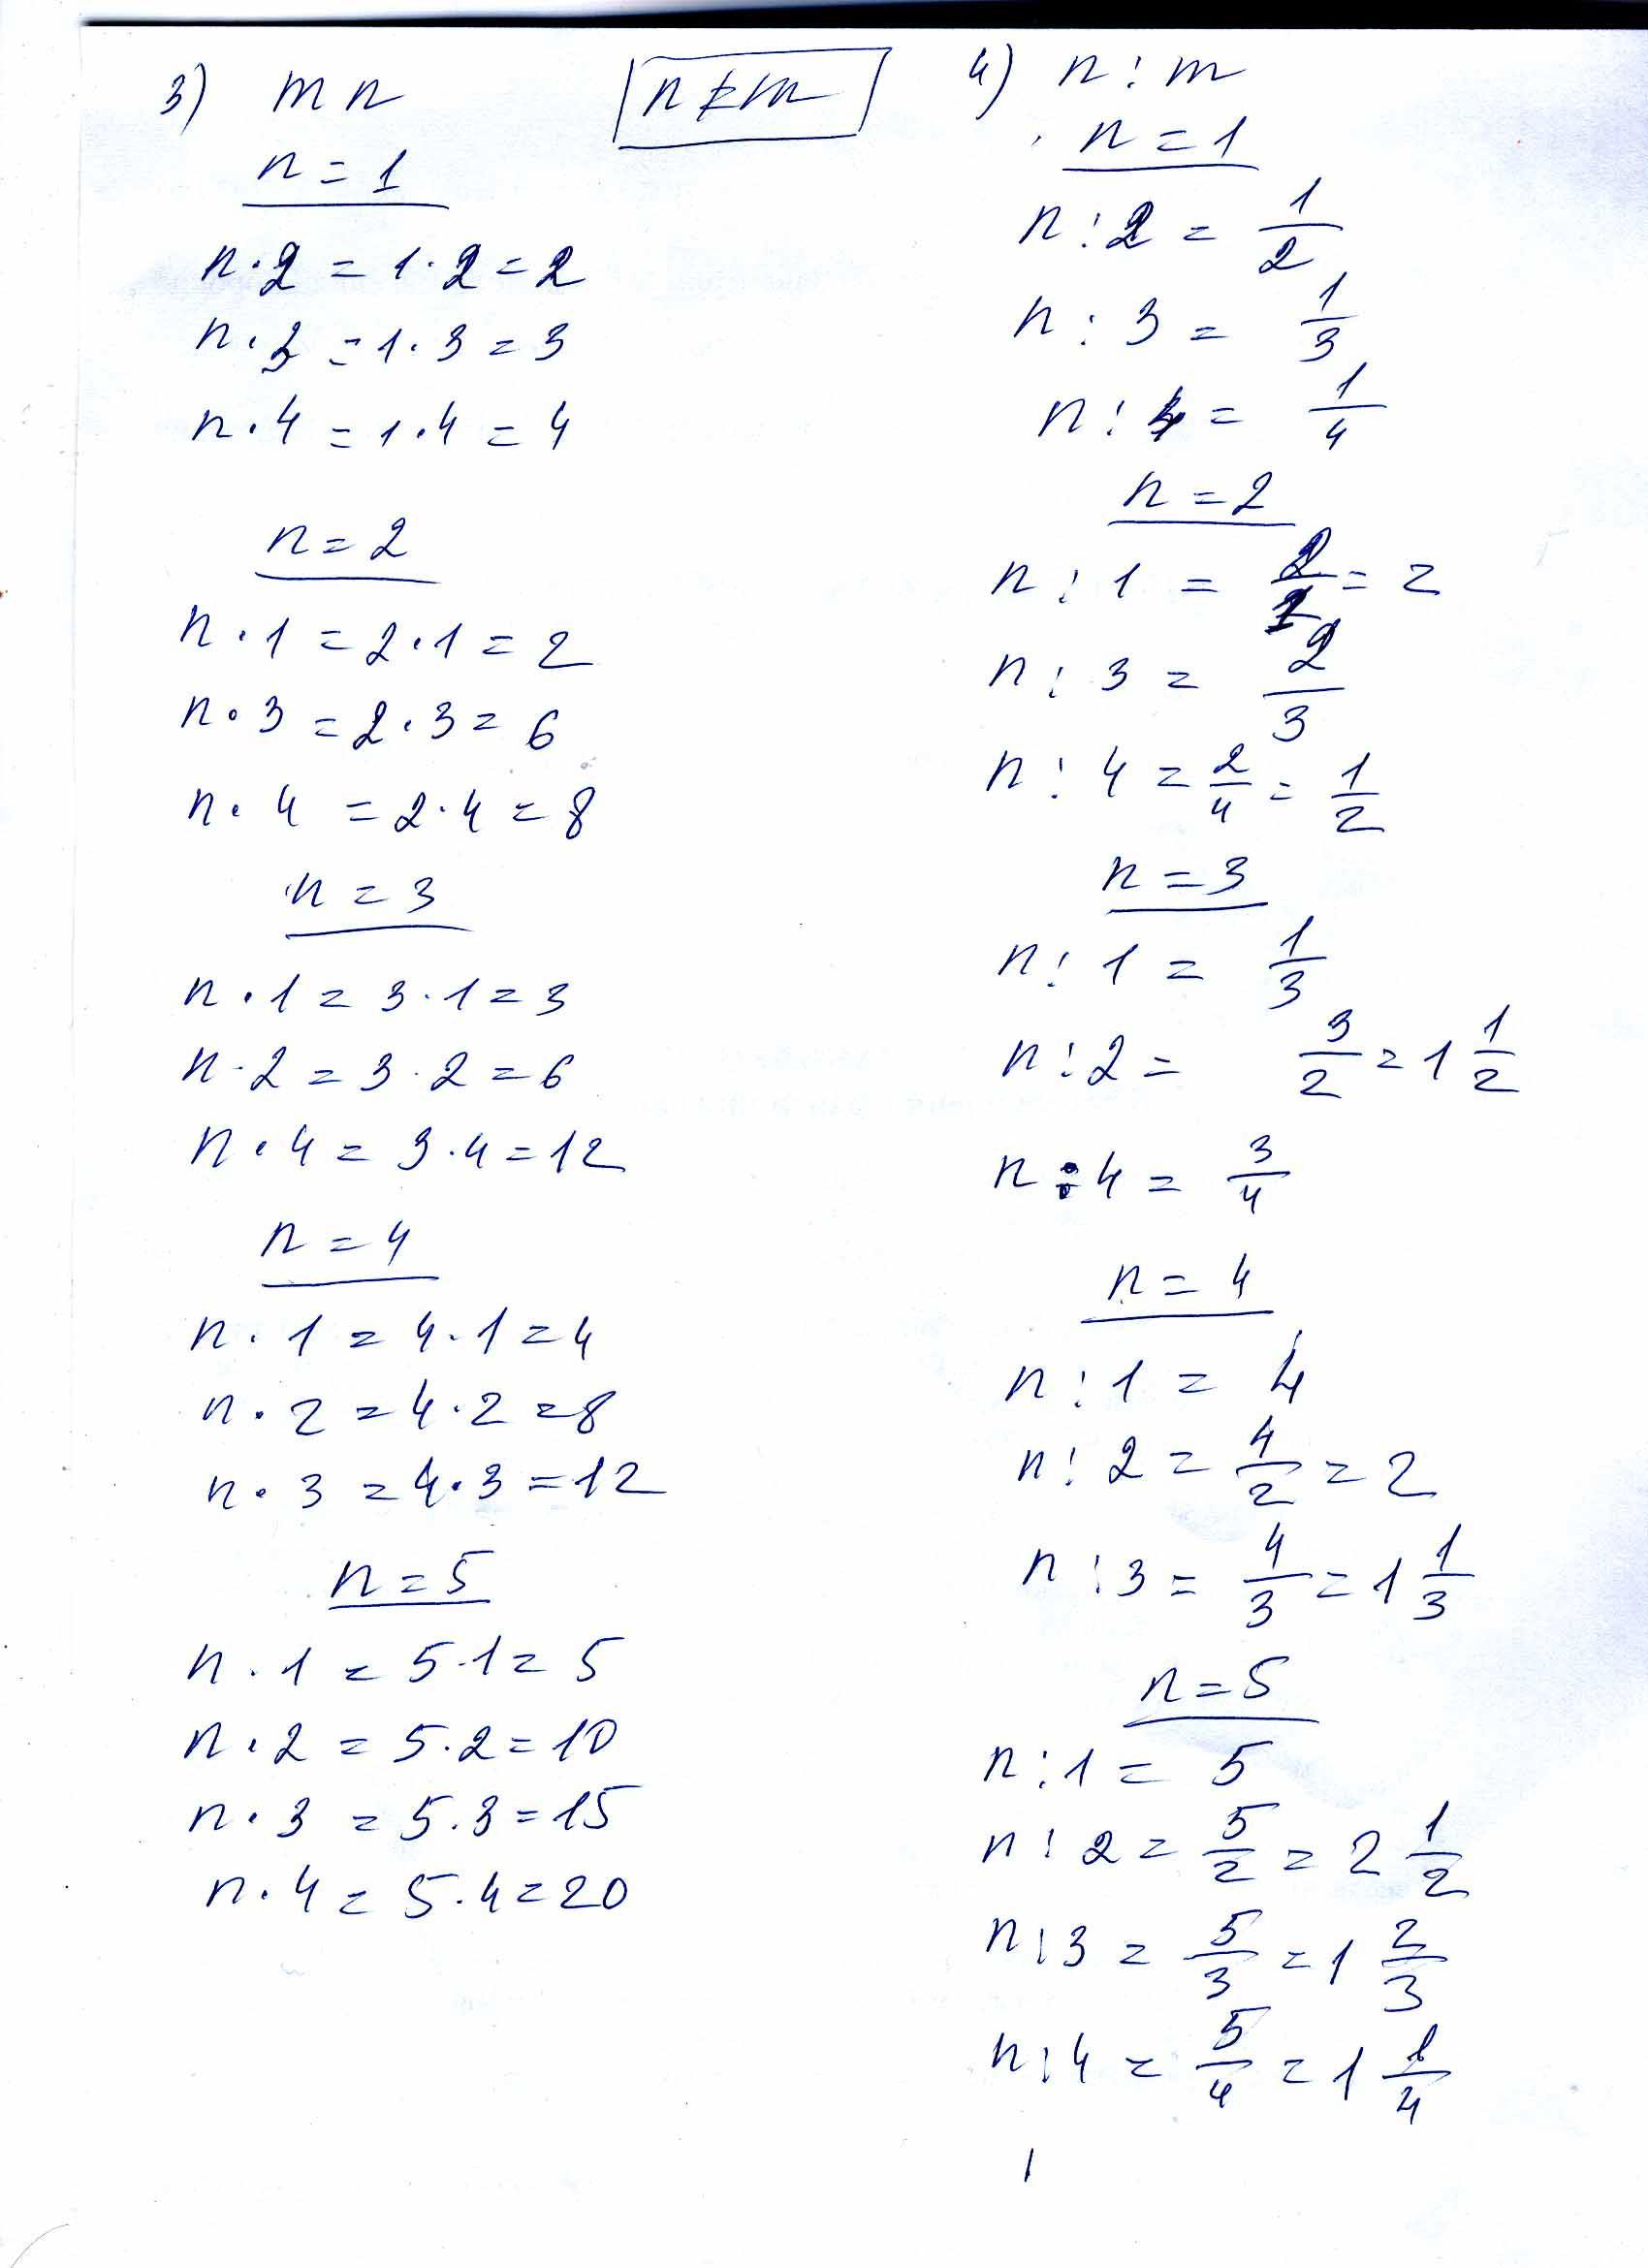 3) m n
n ≠ m
n = 1
n · 2 = 1 · 2 = 2
n · 3 = 1 · 3 = 3
n · 4 = 1 · 4 = 4
n = 2
n · 1 = 2 · 1 = 2
n · 3 = 2 · 3 = 6
n · 4 = 2 · 4 = 8
n = 3
n · 1 = 3 · 1 = 3
n · 2 = 3 · 2 = 6
n · 4 = 3 · 4 = 12
n = 4
n · 1 = 4 · 1 = 4
n · 2 = 4 · 2 = 8
n · 3 = 4 · 3 = 12
n = 5
n · 1 = 5 · 1 = 5
n · 2 = 5 · 2 = 10
n · 3 = 5 · 3 = 15
n · 4 = 5 · 4 = 20
4) n : m
n = 1
n : 2 = 1/2
n : 3 = 1/3
n : 4 = 1/4
n = 2
n : 1 = 2/1 = 2
n : 3 = 2/3
n : 4 = 2/4 = 1/2
n = 3
n : 1 = 1/3
n : 2 = 3/2 = 1 1/2
n : 4 = 3/4
n = 4
n : 1 = 4
n : 2 = 4/2 = 2
n : 3 = 4/3 = 1 1/3
n = 5
n : 1 = 5
n : 2 = 5/2 = 2 1/2
n : 3 = 5/3 = 1 2/3
n : 4 = 5/4 = 1 1/4